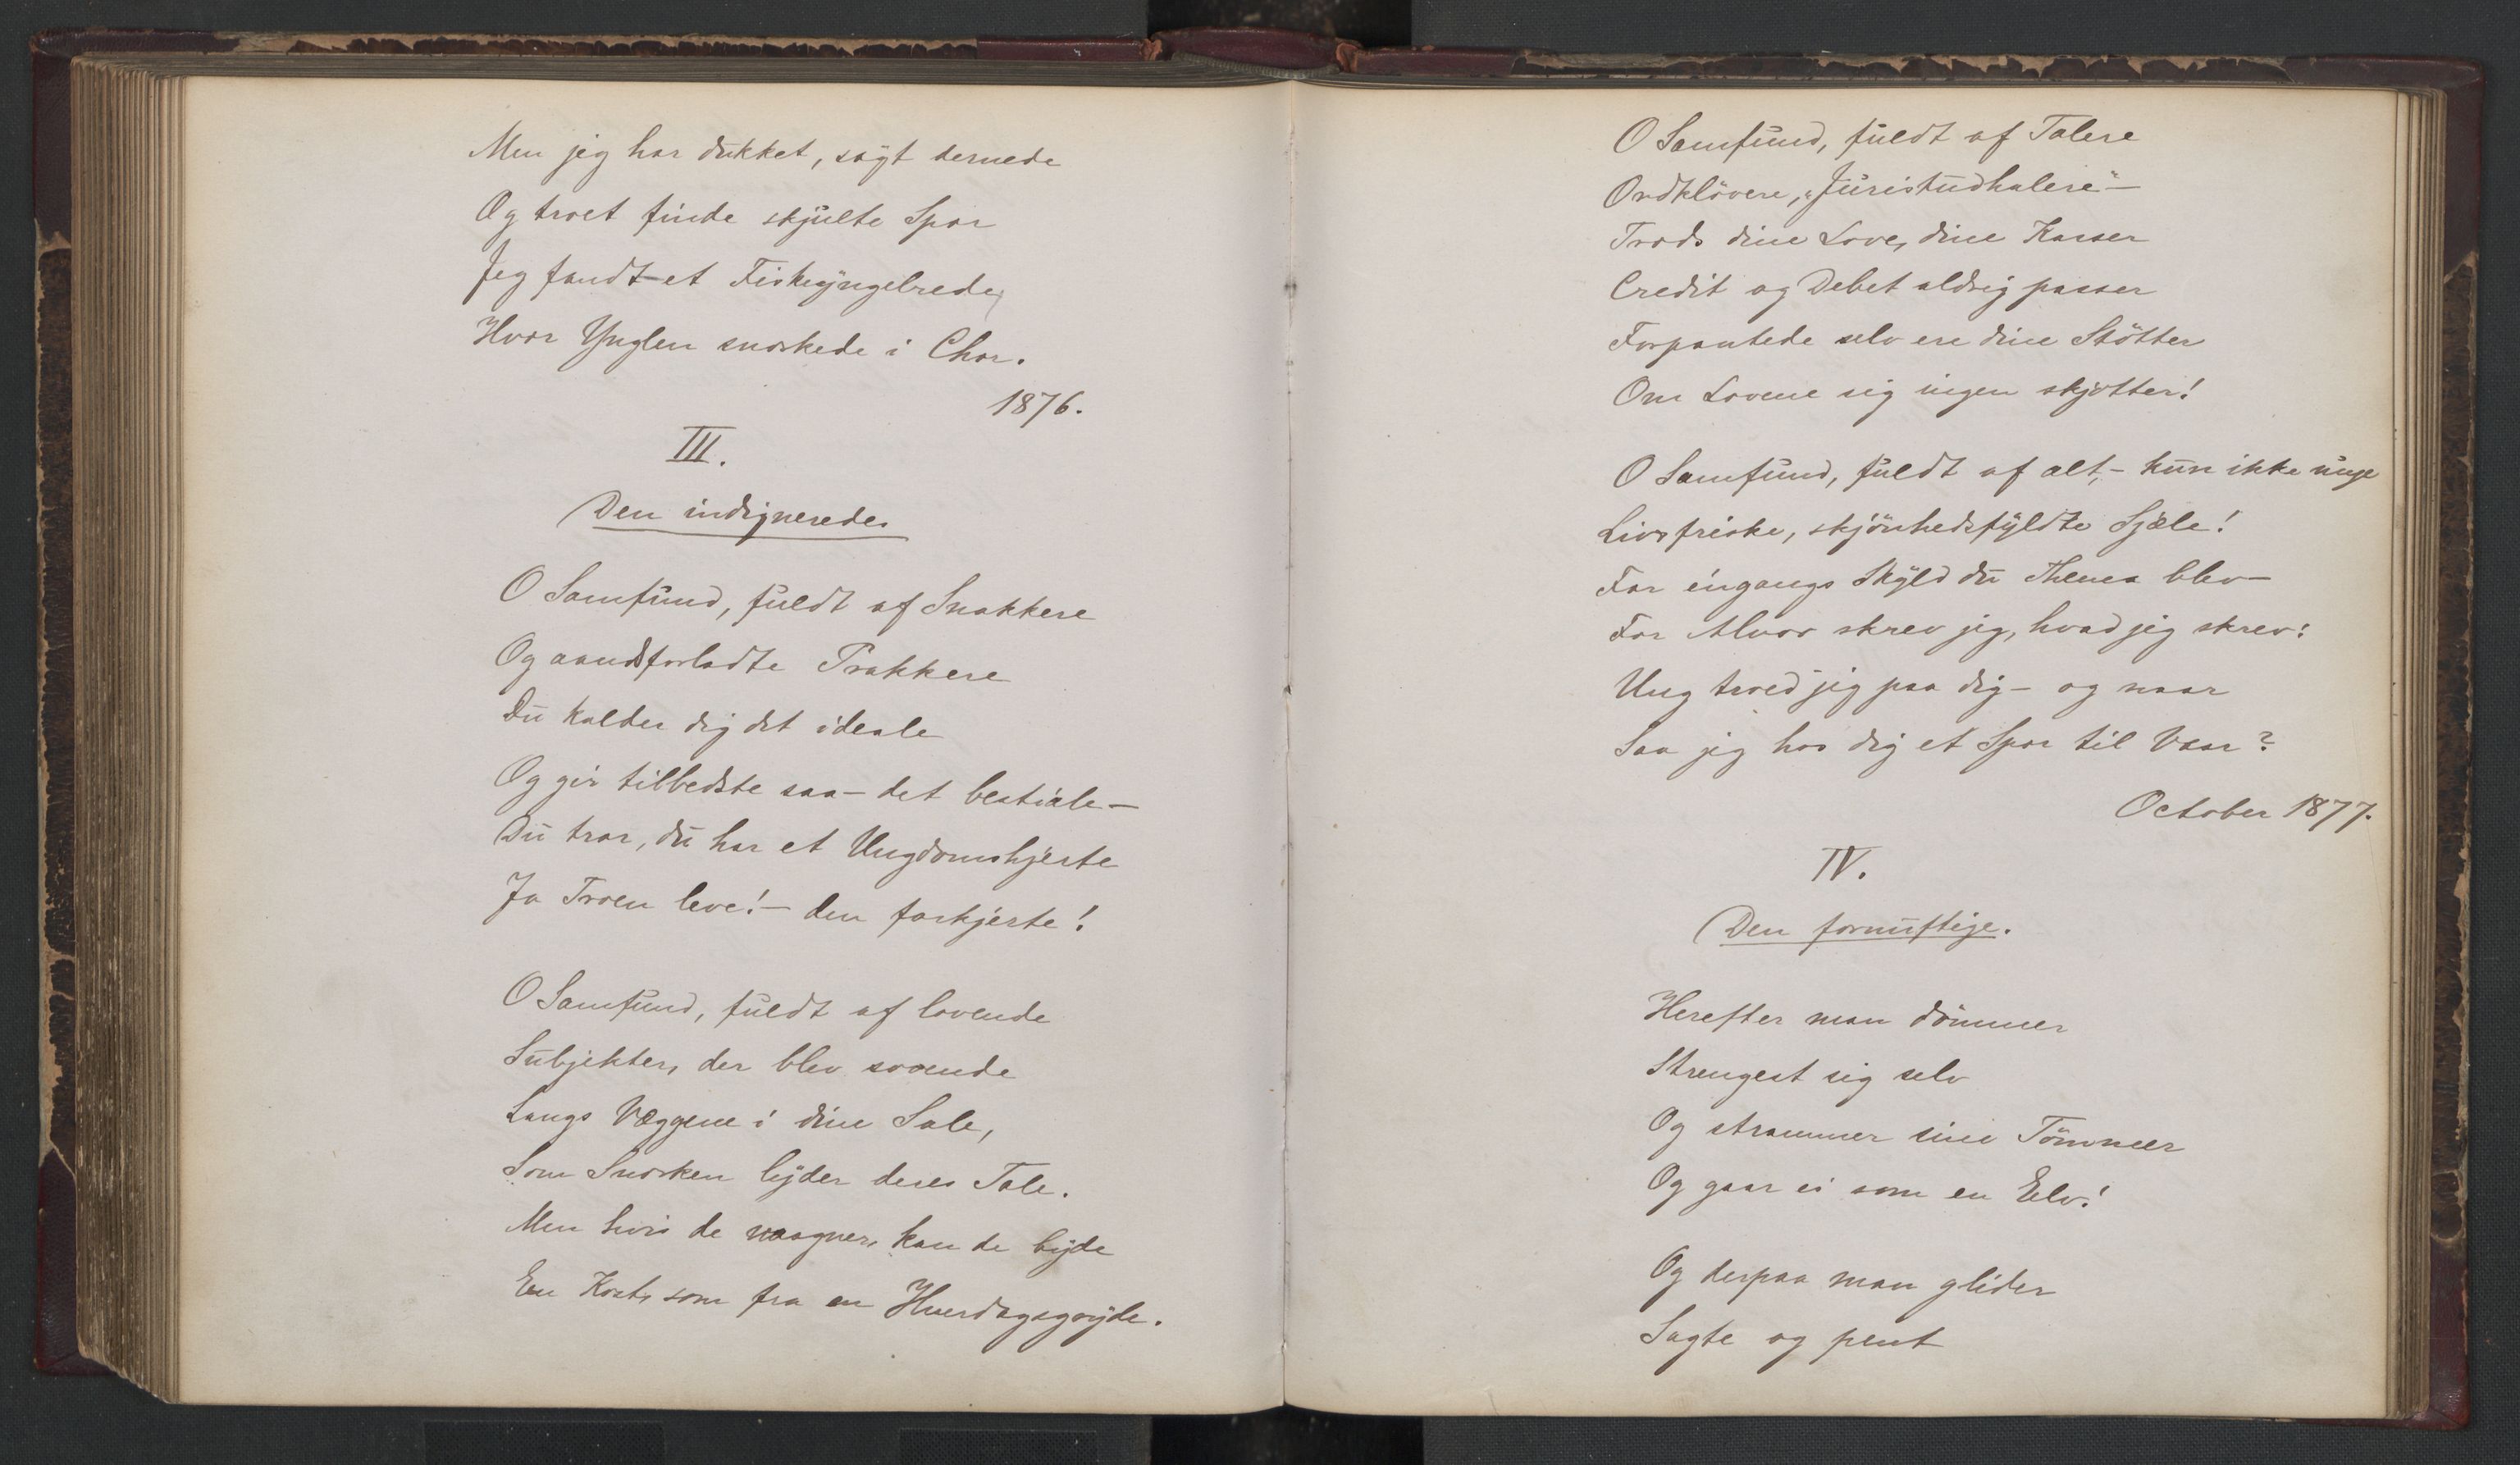 Men jeg har dukket, søgt dernede
Og troet finde skjulte Spor
Jeg fandt et Fiskeyngelrede,
Hvor Ynglen snorkede i Chor.
1876.
III.
Den indignerede.
O Samfund, fuldt af Snakkere
Og aandsforladte Prakkere
Du kalder dig det ideale
Og gir tilbedste saa - det bestiale -
Du tror, du har et Ungdomshjerte
Ja Troen leve! - den forkjerte!
O Samfund, fuldt af lovende
Subjekter, der blev sovende
Langs Væggene i dine Sale,
Som Snorken lyder deres Tale.
Men hvis de vaagner, kan de byde
En Kost, som fra en Hverdagsgryde.
O Samfund, fuldt af Talere
Ordkløvere, "Juristudhalere" -
Trods dine Love, dine Kasser
Credit og Debet aldrig passer
Forpantede selv ere dine Støtter
Om Lovene sig ingen skjøtter!
O Samfund, fuldt af alt, - kun ikke unge
Livsfriske, skjønhedsfyldte Sjæle!
For éngangs Skyld du Thema blev -
For Alvor skrev jeg, hvad jeg skrev:
Ung troed jeg paa dig - og naar
Saa jeg hos dig et Spor til Vaar?
October 1877.
IV.
Den fornuftige.
Herefter man dømmer
Strengest sig selv
Og strammer sine Tømmer
Og gaar ei som en Elv!
Og derpaa man glider
Sagte og pent